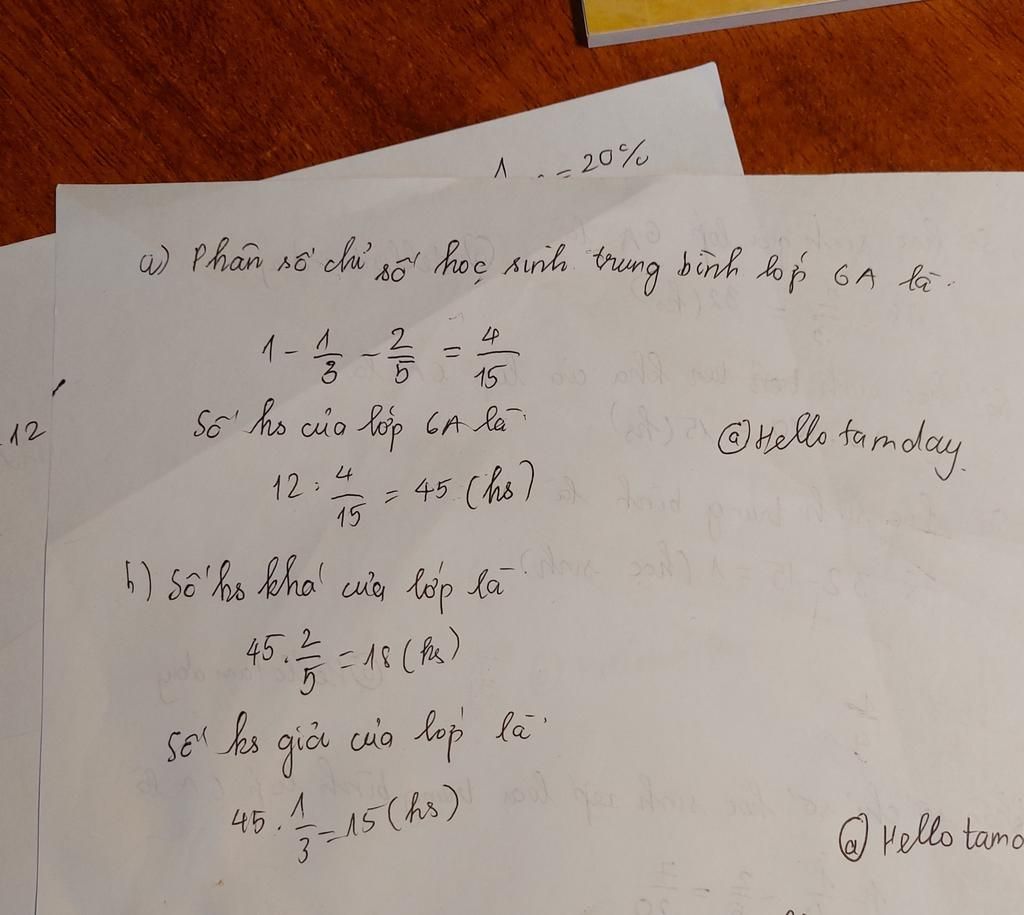 = 20%
a) Phân số chỉ số học sinh trung bình lớp 6A là:
1 - 1/3 - 2/5 = 4/15
Số hs của lớp 6A là:
12
@Hellotamday.
12 : 4/15 = 45 (hs)
b) Số hs khá của lớp là
45 . 2/5 = 18 (hs)
Số hs giỏi của lớp là:
45 . 1/3 = 15 (hs)
@Hellotamd